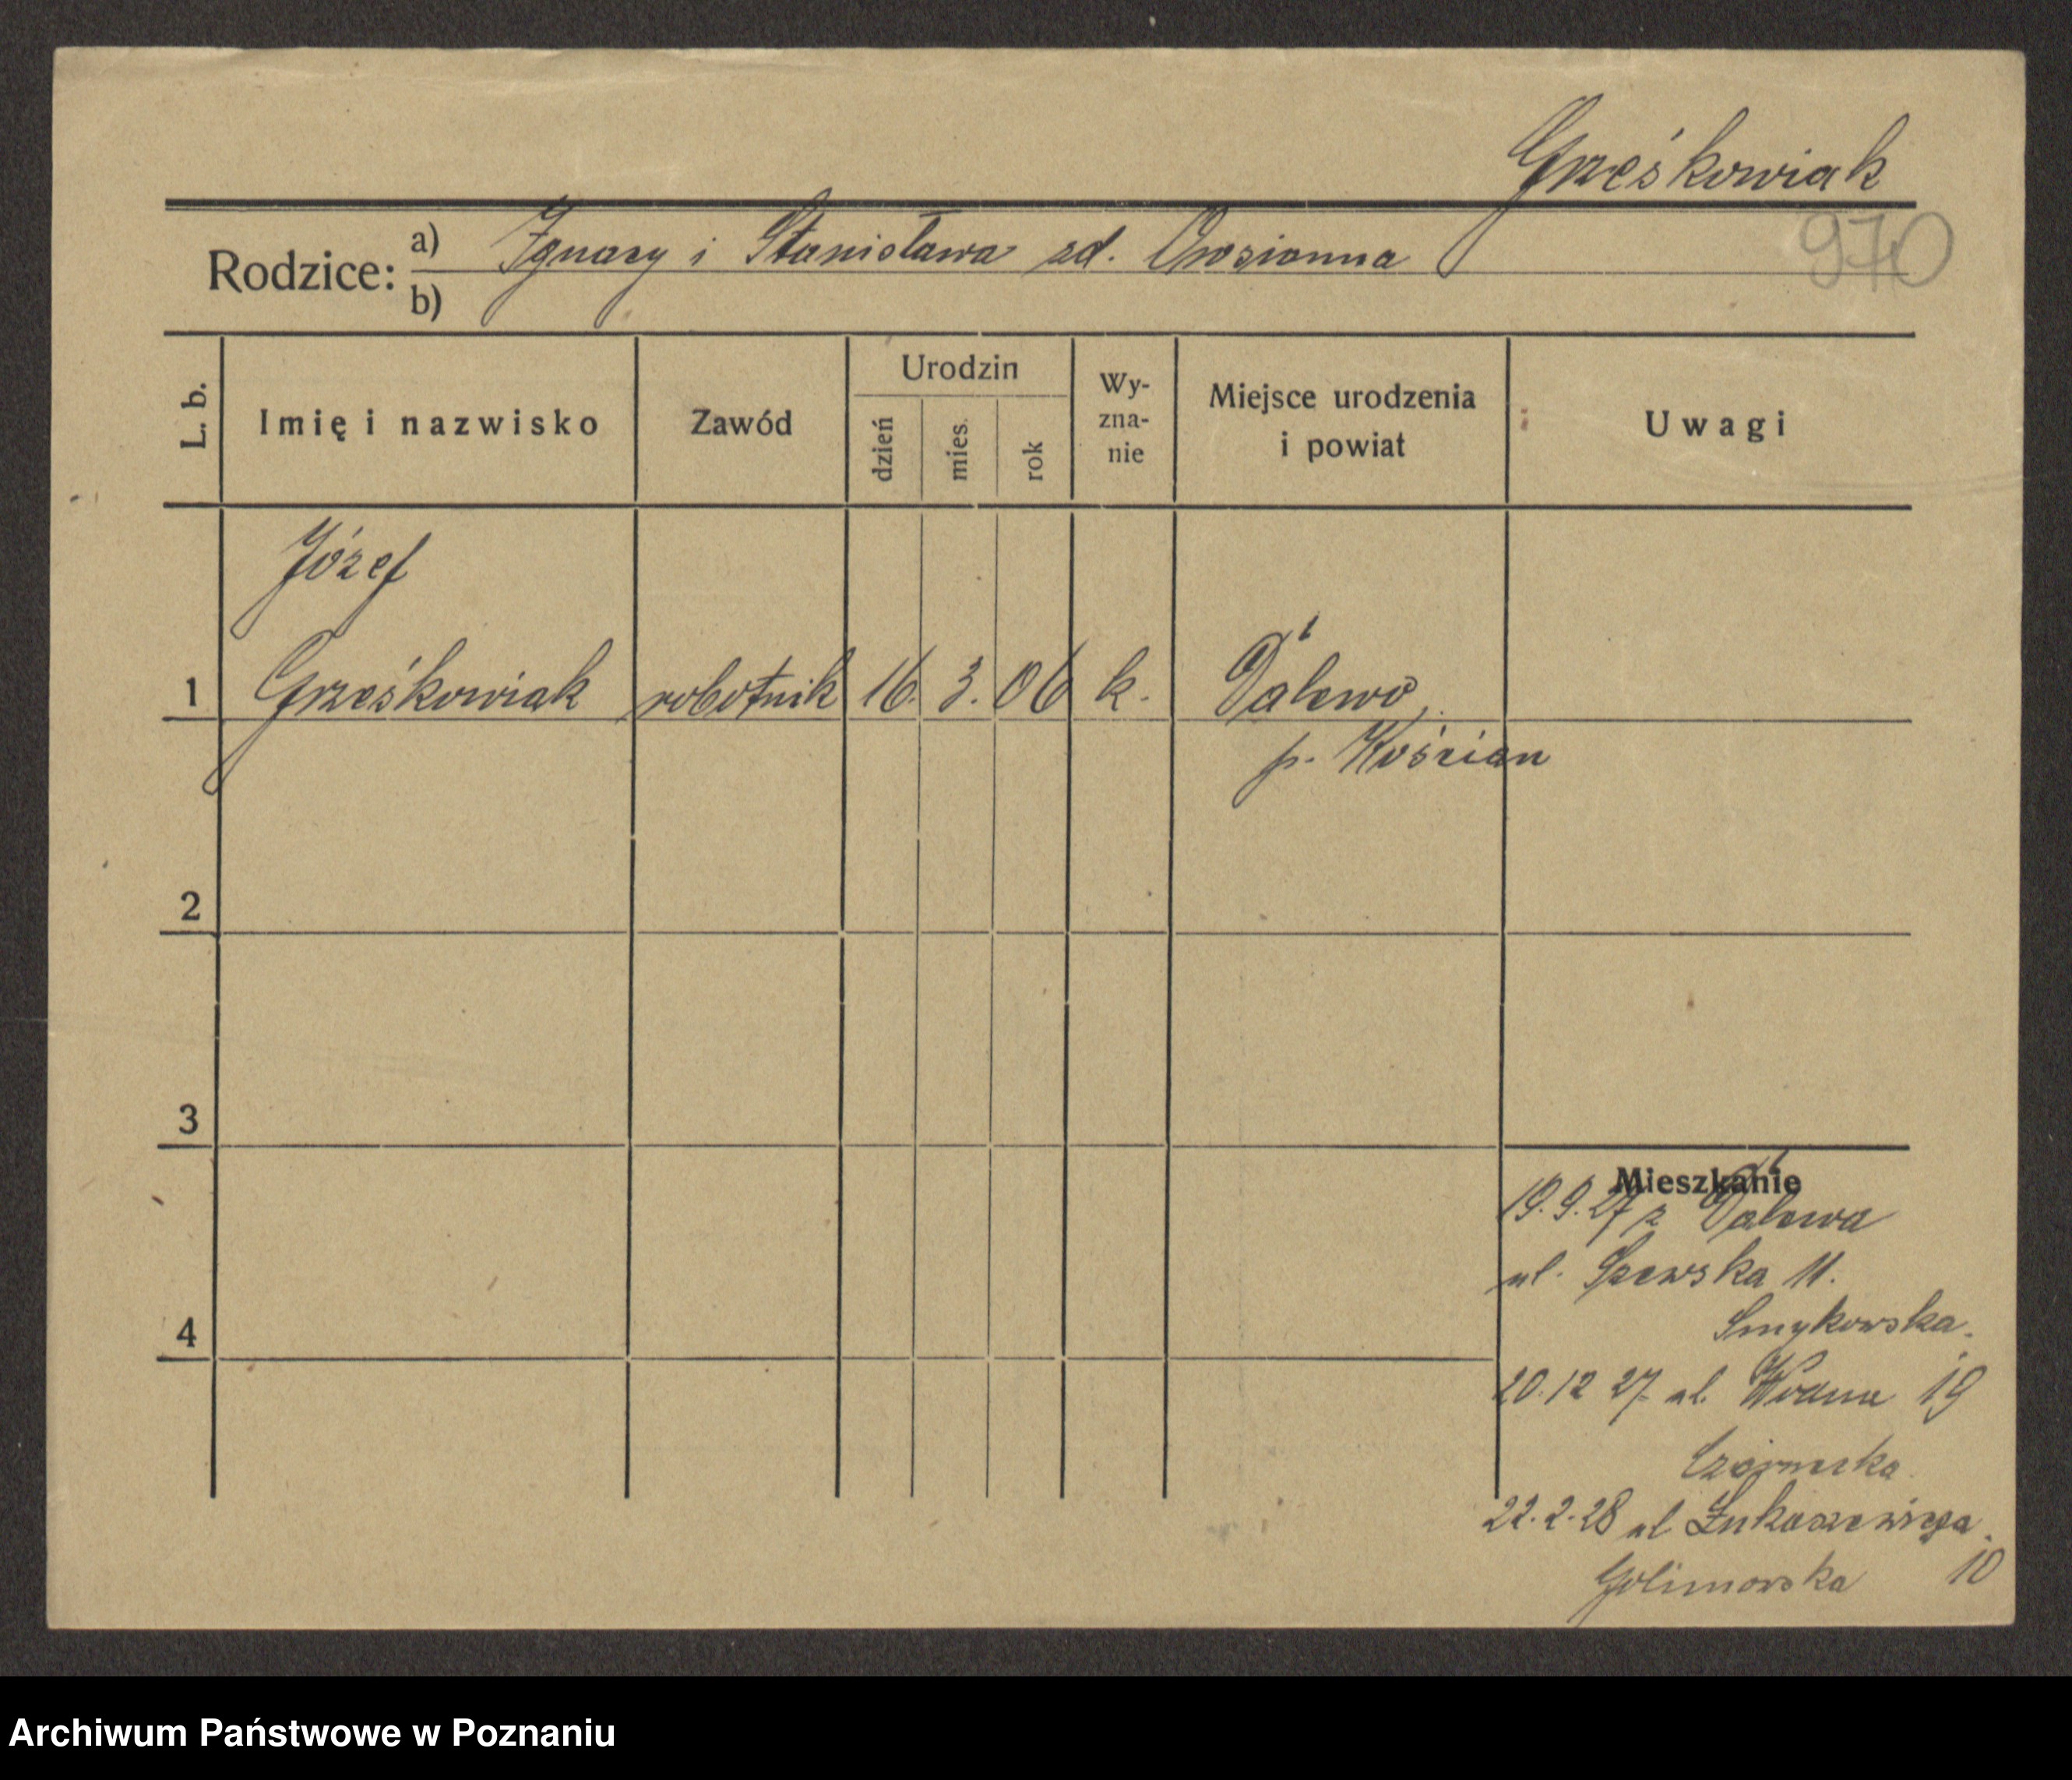 Grześkowiak
Rodzice: a) Ignacy i Stanisława zd. Owsianna
970
b)
L. b.
Imię i nazwisko
Zawód
Urodzin
dzień
mies.
rok
Wy-
zna-
nie
Miejsce urodzenia
i powiat
Uwagi
Józef
1 Grześkowiak robotnik 16. 3. 06 k. Dalewo,
p. Kościan
2
3
4
Mieszkanie
19.9.27 z Dalewa
ul. Szewska 11.
Smykowska.
20.12 27 ul. Wodna 19
Czarnecka
22.2.28 ul Łukaszewicza
Golimowska 10
Archiwum Państwowe w Poznaniu